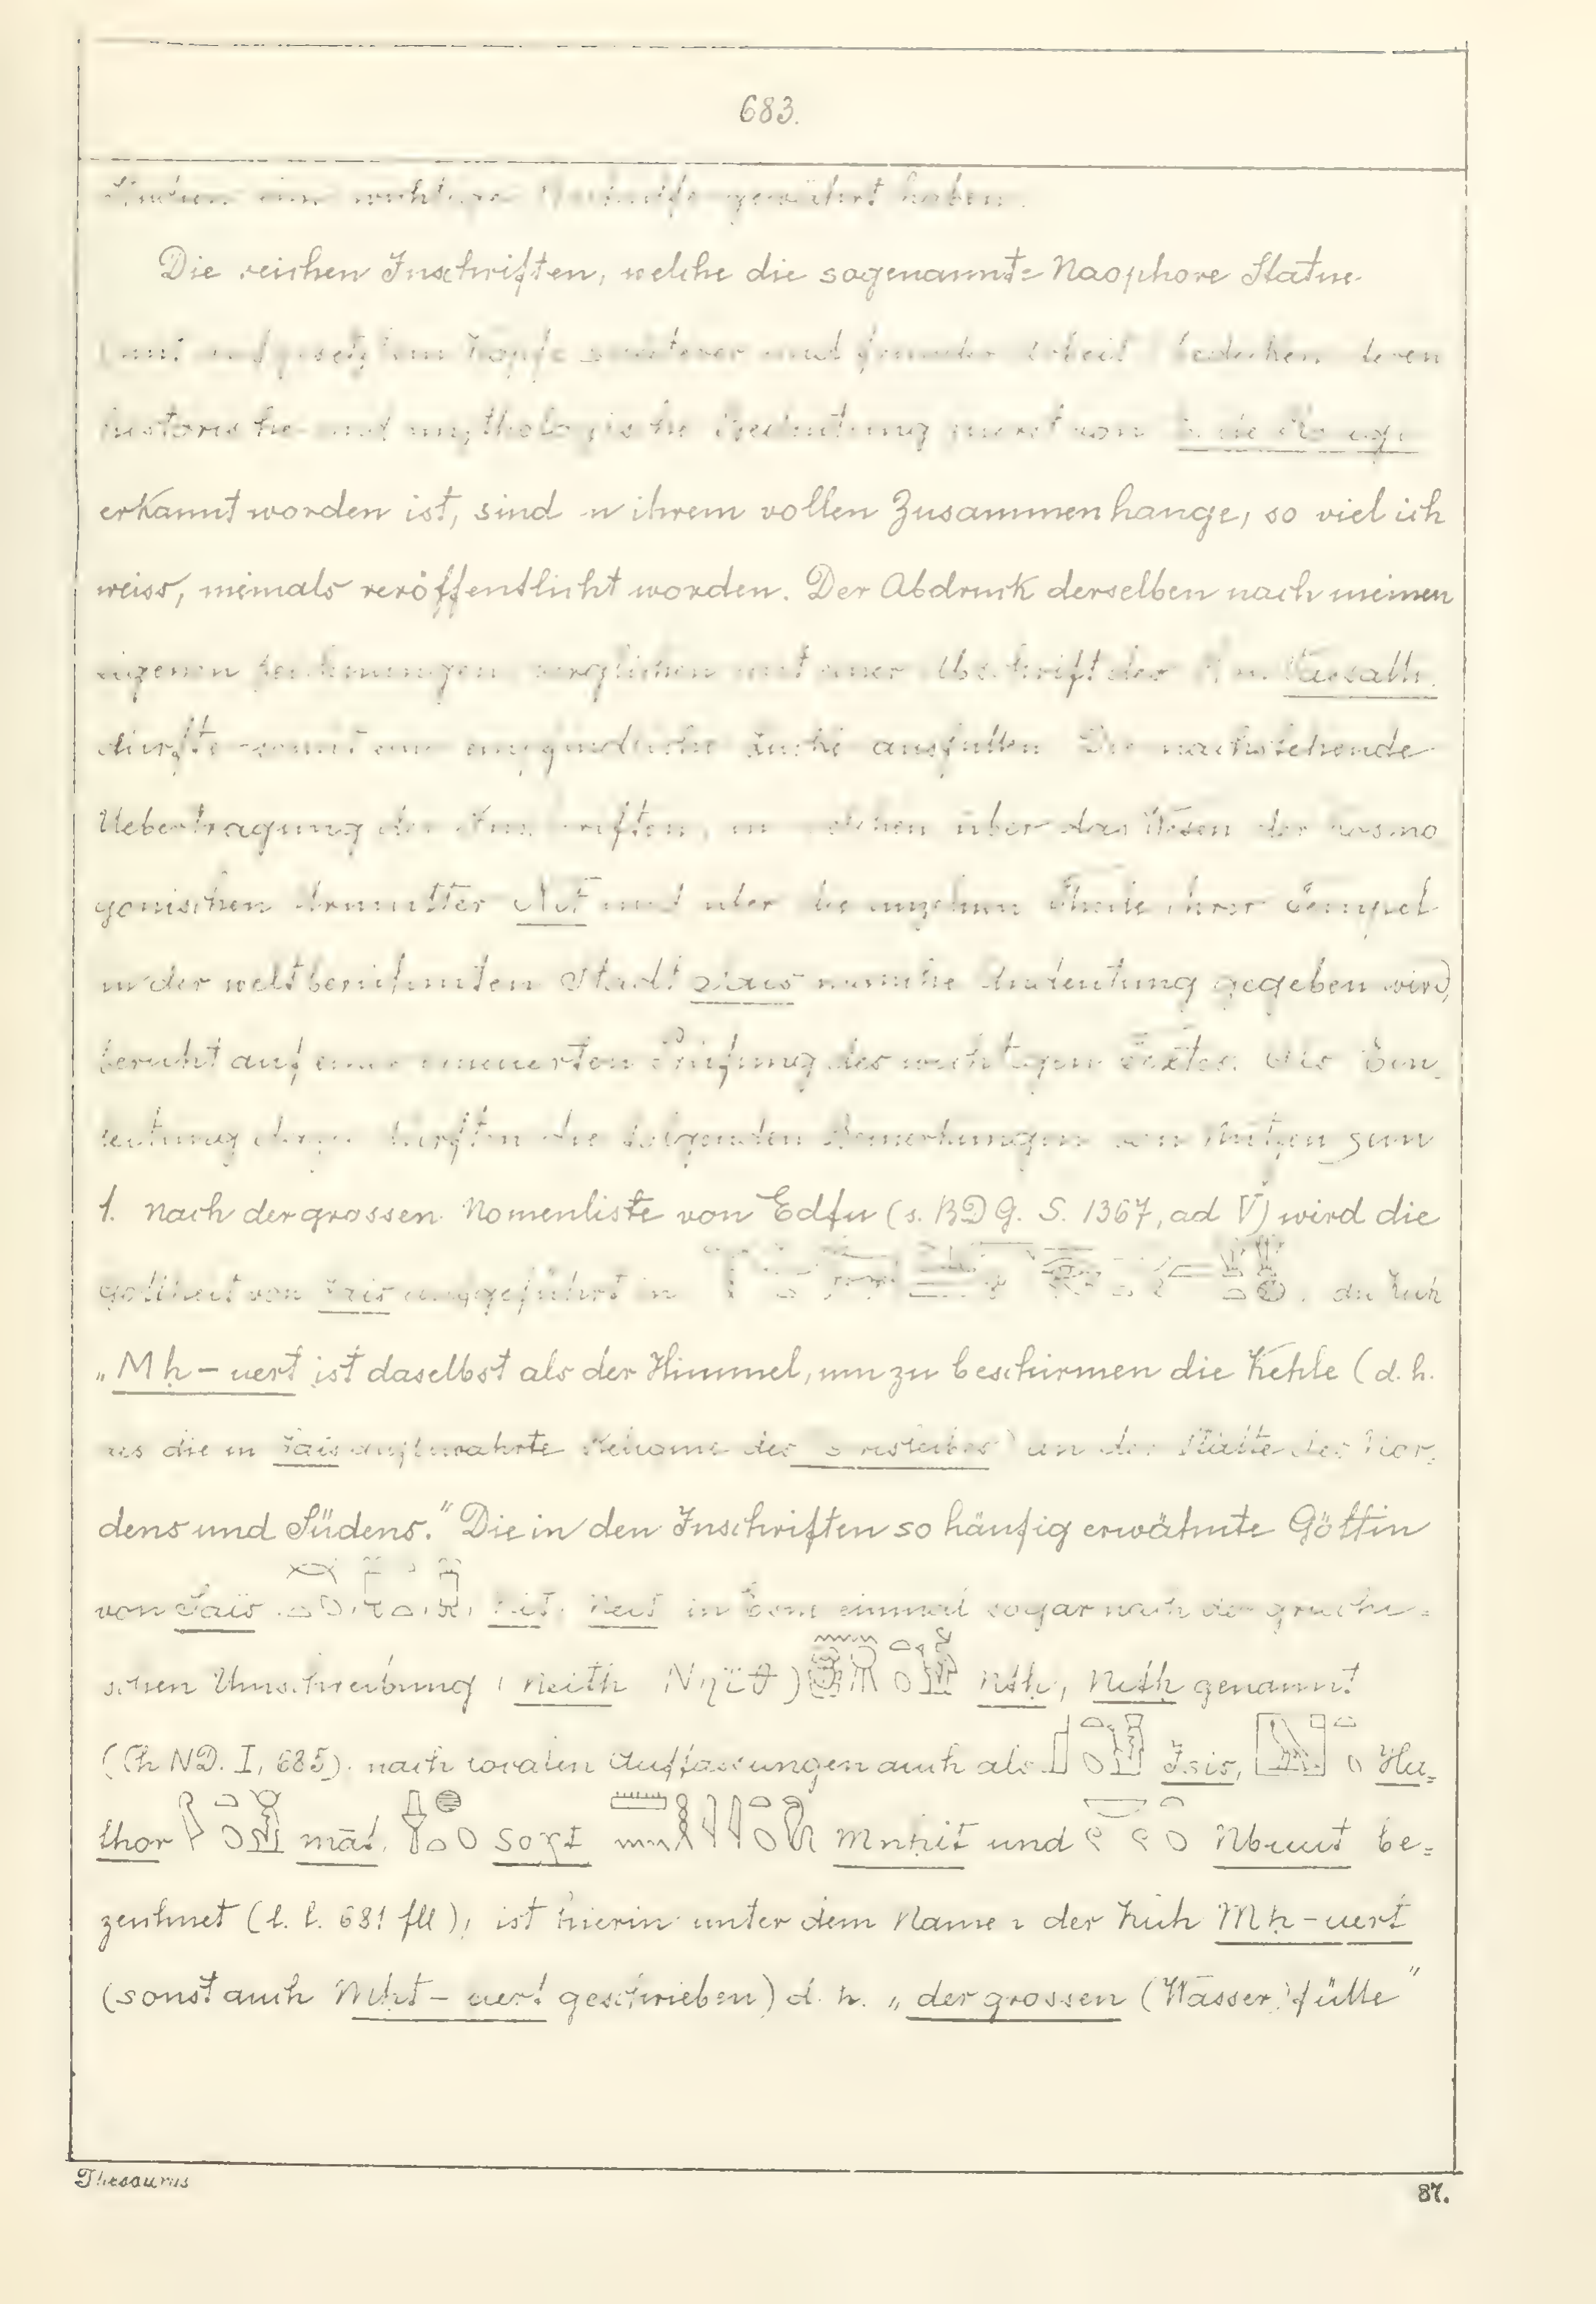 683.
gewährt haben.
Die reichen Inschriften, welche die sogenannte Naophore Statue
Kopfe späterer und fremder Arbeit) bedecken, deren
historische und mythologische Bedeutung zuerst von
erkannt worden ist, sind in ihrem vollen Zusammenhange, so viel ich
weiss, niemals veröffentlicht worden. Der Abdruck derselben nach meinen
eigenen Zeichnungen, verglichen mit einer Abschrift des Hn. Vassalli,
dürfte somit eine empfindliche Lücke ausfüllen. Die nachstehende
Uebertragung der Inschriften, in welchen über das Wesen der kosmo
gonischen Urmutter Nit und über die einzelnen Theile ihrer Tempel
in der weltberühmten Stadt Sais manche Andeutung gegeben wird,
beruht auf einer erneuerten Prüfung des wichtigen Textes. Als Ein-
leitung dazu dürften die folgenden Bemerkungen von Nutzen sein
1. nach der grossen Nomenliste von Edfu (s. BDG. S. 1367, ad V) wird die
Gottheit von Sais angeführt in die Kuh
„Mḥ-uert ist daselbst als der Himmel, um zu beschirmen die Kehle (d. h.
als die in Sais aufbewahrte des ) an der Stätte des Nor=
dens und Südens." Die in den Inschriften so häufig erwähnte Göttin
von Saïs Nit, Neit in Esne einmal sogar nach der griechi=
schen Umschreibung (Neith Νηϊθ) Ntḥ, Nitḥ genannt
(Ch ND. I, 685). nach localen Auffassungen auch als Isis, Ha=
thor māt, soχt Mnḥit und Nbuut be=
zeichnet (l. l. 681 fll), ist hierin unter dem Namen der Kuh Mḥ-uert
(sonst auch Mḥt-uert geschrieben) d. h. „der grossen (Wasser)fülle"
Thesaurus
87.